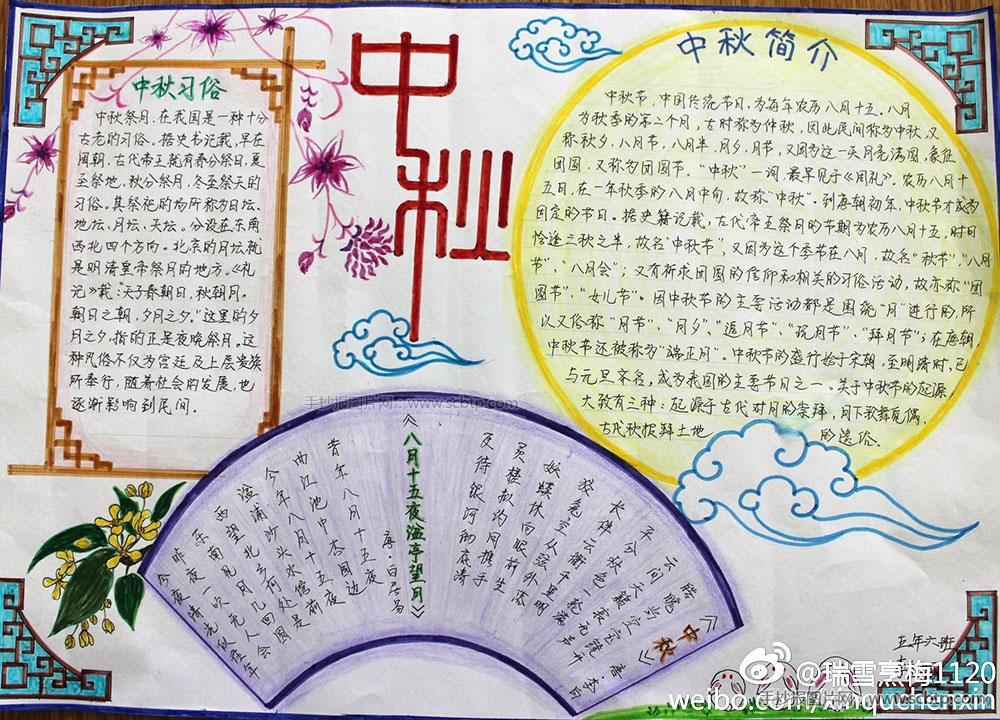 中秋习俗
中秋祭月,在我国是一种十分
古老的习俗。据史书记载,早在
周朝,古代帝王就有春分祭日,夏
至祭地,秋分祭月,冬至祭天的
习俗。其祭祀的场所称为日坛、
地坛、月坛、天坛。分设在东南
西北四个方向。北京的月坛就
是明清皇帝祭月的地方。《礼
记》载:"天子春朝日,秋朝月。
朝日之朝,夕月之夕。"这里的夕
月之夕,指的正是夜晚祭月。这
种风俗不仅为宫廷及上层贵族
所奉行,随着社会的发展,也
逐渐影响到民间.
中秋
中秋简介
中秋节,中国传统节日,为每年农历八月十五.八月
为秋季的第二个月,古时称为仲秋,因此民间称为中秋,又
称秋夕,八月节,八月半,月夕,月节,又因为这一天月亮满圆,象征
团圆,又称为团圆节。"中秋"一词,最早见于《周礼》.农历八月十
五日,在一年秋季的八月中旬,故称"中秋".到唐朝初年,中秋节才成为
固定的节日。据史籍记载,古代帝王祭月的节期为农历八月十五,时日
恰逢三秋之半,故名"中秋节",又因为这个季节在八月,故名"秋节","八月
节"、"八月会";又有祈求团圆的信仰和相关的习俗活动,故亦称"团
圆节","女儿节"。因中秋节的主要活动都是围绕"月"进行的,所
以又俗称"月节"、"月夕"、"追月节"、"玩月节"、"拜月节";在唐朝,
中秋节还被称为"端正月".中秋节的盛行始于宋朝,至明清时,已
与元旦齐名,成为我国的主要节日之一.关于中秋节的起源,
大致有三种:起源于古代对月的崇拜,月下歌舞觅偶,
古代秋报拜土地 的遗俗.
手抄报图片网:www.scbtp.com
《中秋》
唐 李朴
皓魄当空宝镜升
云间仙籁寂无声
平分秋色一轮满
长伴云衢千里明
狡兔空从弦外落
妖蟆休向眼前生
灵槎拟约同携手
更待银河彻底清
《八月十五夜湓亭望月》
唐 白居易
昔年八月十五夜
曲江池中杏园边
今年八月十五夜
湓浦沙头水馆前
西望乡何处是
东南见月几回圆
昨夜一吹无人会
今夜清光似往年
五年六班
@瑞雪烹梅1120
手抄报图片网 www.scbtp.com